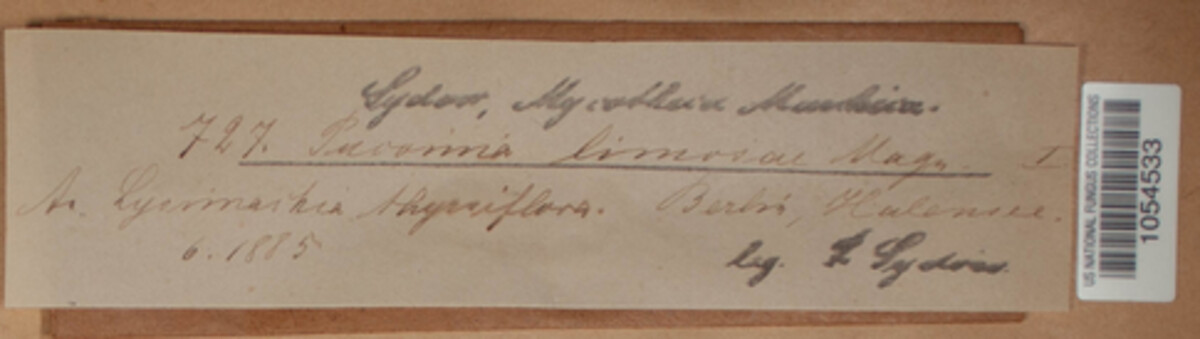 Sydow, Mycotheca Marchica.
727. Puccinia limosae Magn. I
An. Lysimachia thyrsiflora. Berlin, Halensee.
6. 1885
leg. P Sydow.
US NATIONAL FUNGUS COLLECTIONS
1054533